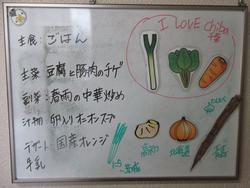 I LOVE Chiba
主食: ごはん
主菜: 豆腐と豚肉のチゲ
副菜: 春雨の中華炒め
汁物: 卵入りオニオンスープ
デザート: 国産オレンジ
牛乳
北海道